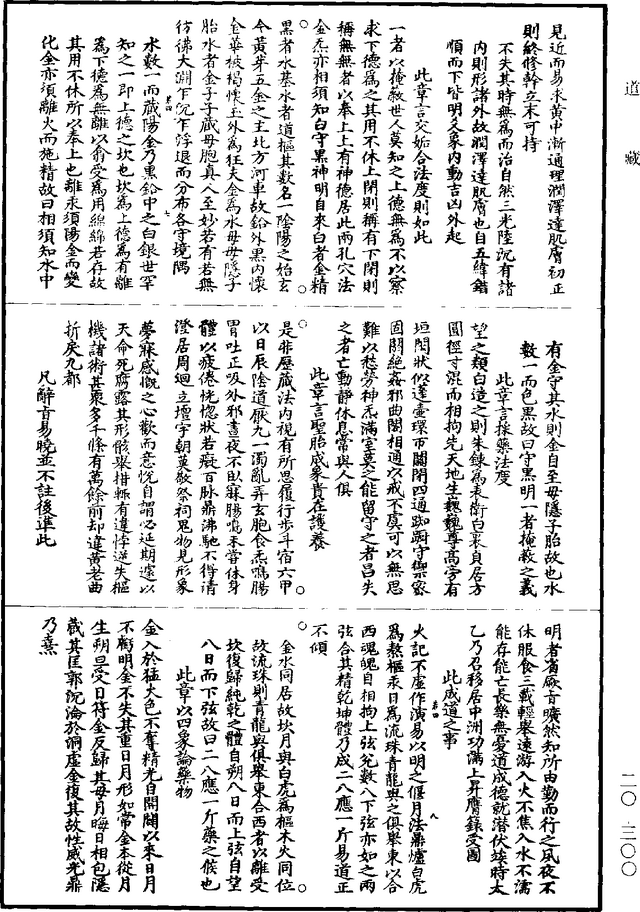 道藏
見近而易求黃中漸通理潤澤達肌膚初正
則終修幹立末可持
不失其時無為而治自然三光陸沉有諸
內則形諸外故潤澤達肌膚也自五緯錯
順而下皆明爻象內動吉凶外起
此章言交姤合法度則如此
一者以掩蔽世人莫知之上德無為不以察
求下德為之其用不休上閉則稱有下閉則
稱無無者以奉上上有神德居此兩孔穴法
金炁亦相須知白守黑神明自來白者金精
黑者水基水者道樞其數名一陰陽之始玄
含黃芽五金之主北方河車故鉛外黑內懷
金華被褐懷玉外為狂夫金為水母母隱子
胎水者金子子藏母胞真人至妙若有若無
彷彿大淵乍沉乍浮退而分布各守境隅
水數一而藏陽金乃黑鉛中之白銀世罕
知之一即上德之坎也坎為上德為有離
為下德為無離以翕受為用綿綿若存故
其用不休所以奉上也離汞須陽金而變
化金亦須離火而施精故曰相須知水中
有金守其水則金自至母隱子胎故也水
數一而色黑故曰守黑明一者掩蔽之義
此章言採藥法度
望之類白造之則朱鍊為表衛白裏貞居方
圓徑寸混而相拘先天地生巍巍尊高旁有
垣闕狀似蓬壺環匝關閉四通踟躕守禦密
固閼絕姦邪曲閣相通以戒不虞可以無思
難以愁勞神炁滿室莫之能留守之者昌失
之者亡動靜休息常與人俱
此章言聖胎成象貴在護養
是非歷藏法內視有所思履行步斗宿六甲
以日辰陰道厭九一濁亂弄玄胞食炁鳴腸
胃吐正吸外邪晝夜不臥寐腸鳴未嘗休身
體以疲倦恍惚狀若癡百脉鼎沸馳不得清
澄居周迴立壇宇朝莫敬祭祠鬼物見形象
夢寐感慨之心歡而意悅自謂必延期遽以
天命死腐露其形骸舉措輒有違悖逆失樞
機諸術甚衆多千條有萬餘前却違黃老曲
折戾九都
凡辭旨易曉並不註後準此
明者省厥旨曠然知所由勤而行之夙夜不
休服食三載輕舉遠游入火不焦入水不濡
能存能亡長樂無憂道成德就潛伏竢時太
乙乃召移居中洲功滿上昇膺錄受圖
此成道之事
火記不虛作演易以明之偃月法鼎爐白虎
為熬樞汞日為流珠青龍與之俱舉東以合
西魂魄自相拘上弦兌數八下弦亦如之兩
弦合其精乾坤體乃成二八應一斤易道正
不傾
金水同居故坎月與白虎為樞木火同位
故流珠則青龍與俱舉東合西者以離受
坎復歸純乾之體自朔八日而上弦自望
八日而下弦故曰二八應一斤藥之候也
此章以四象論藥物
金入於猛火色不奪精光自開闢以來日月
不虧明金不失其重日月形如常金本從月
生朔旦受日符金反歸其母月晦日相包隱
藏其匡郭沉淪於洞虛金復其故性威光鼎
乃熹
二〇·三〇〇